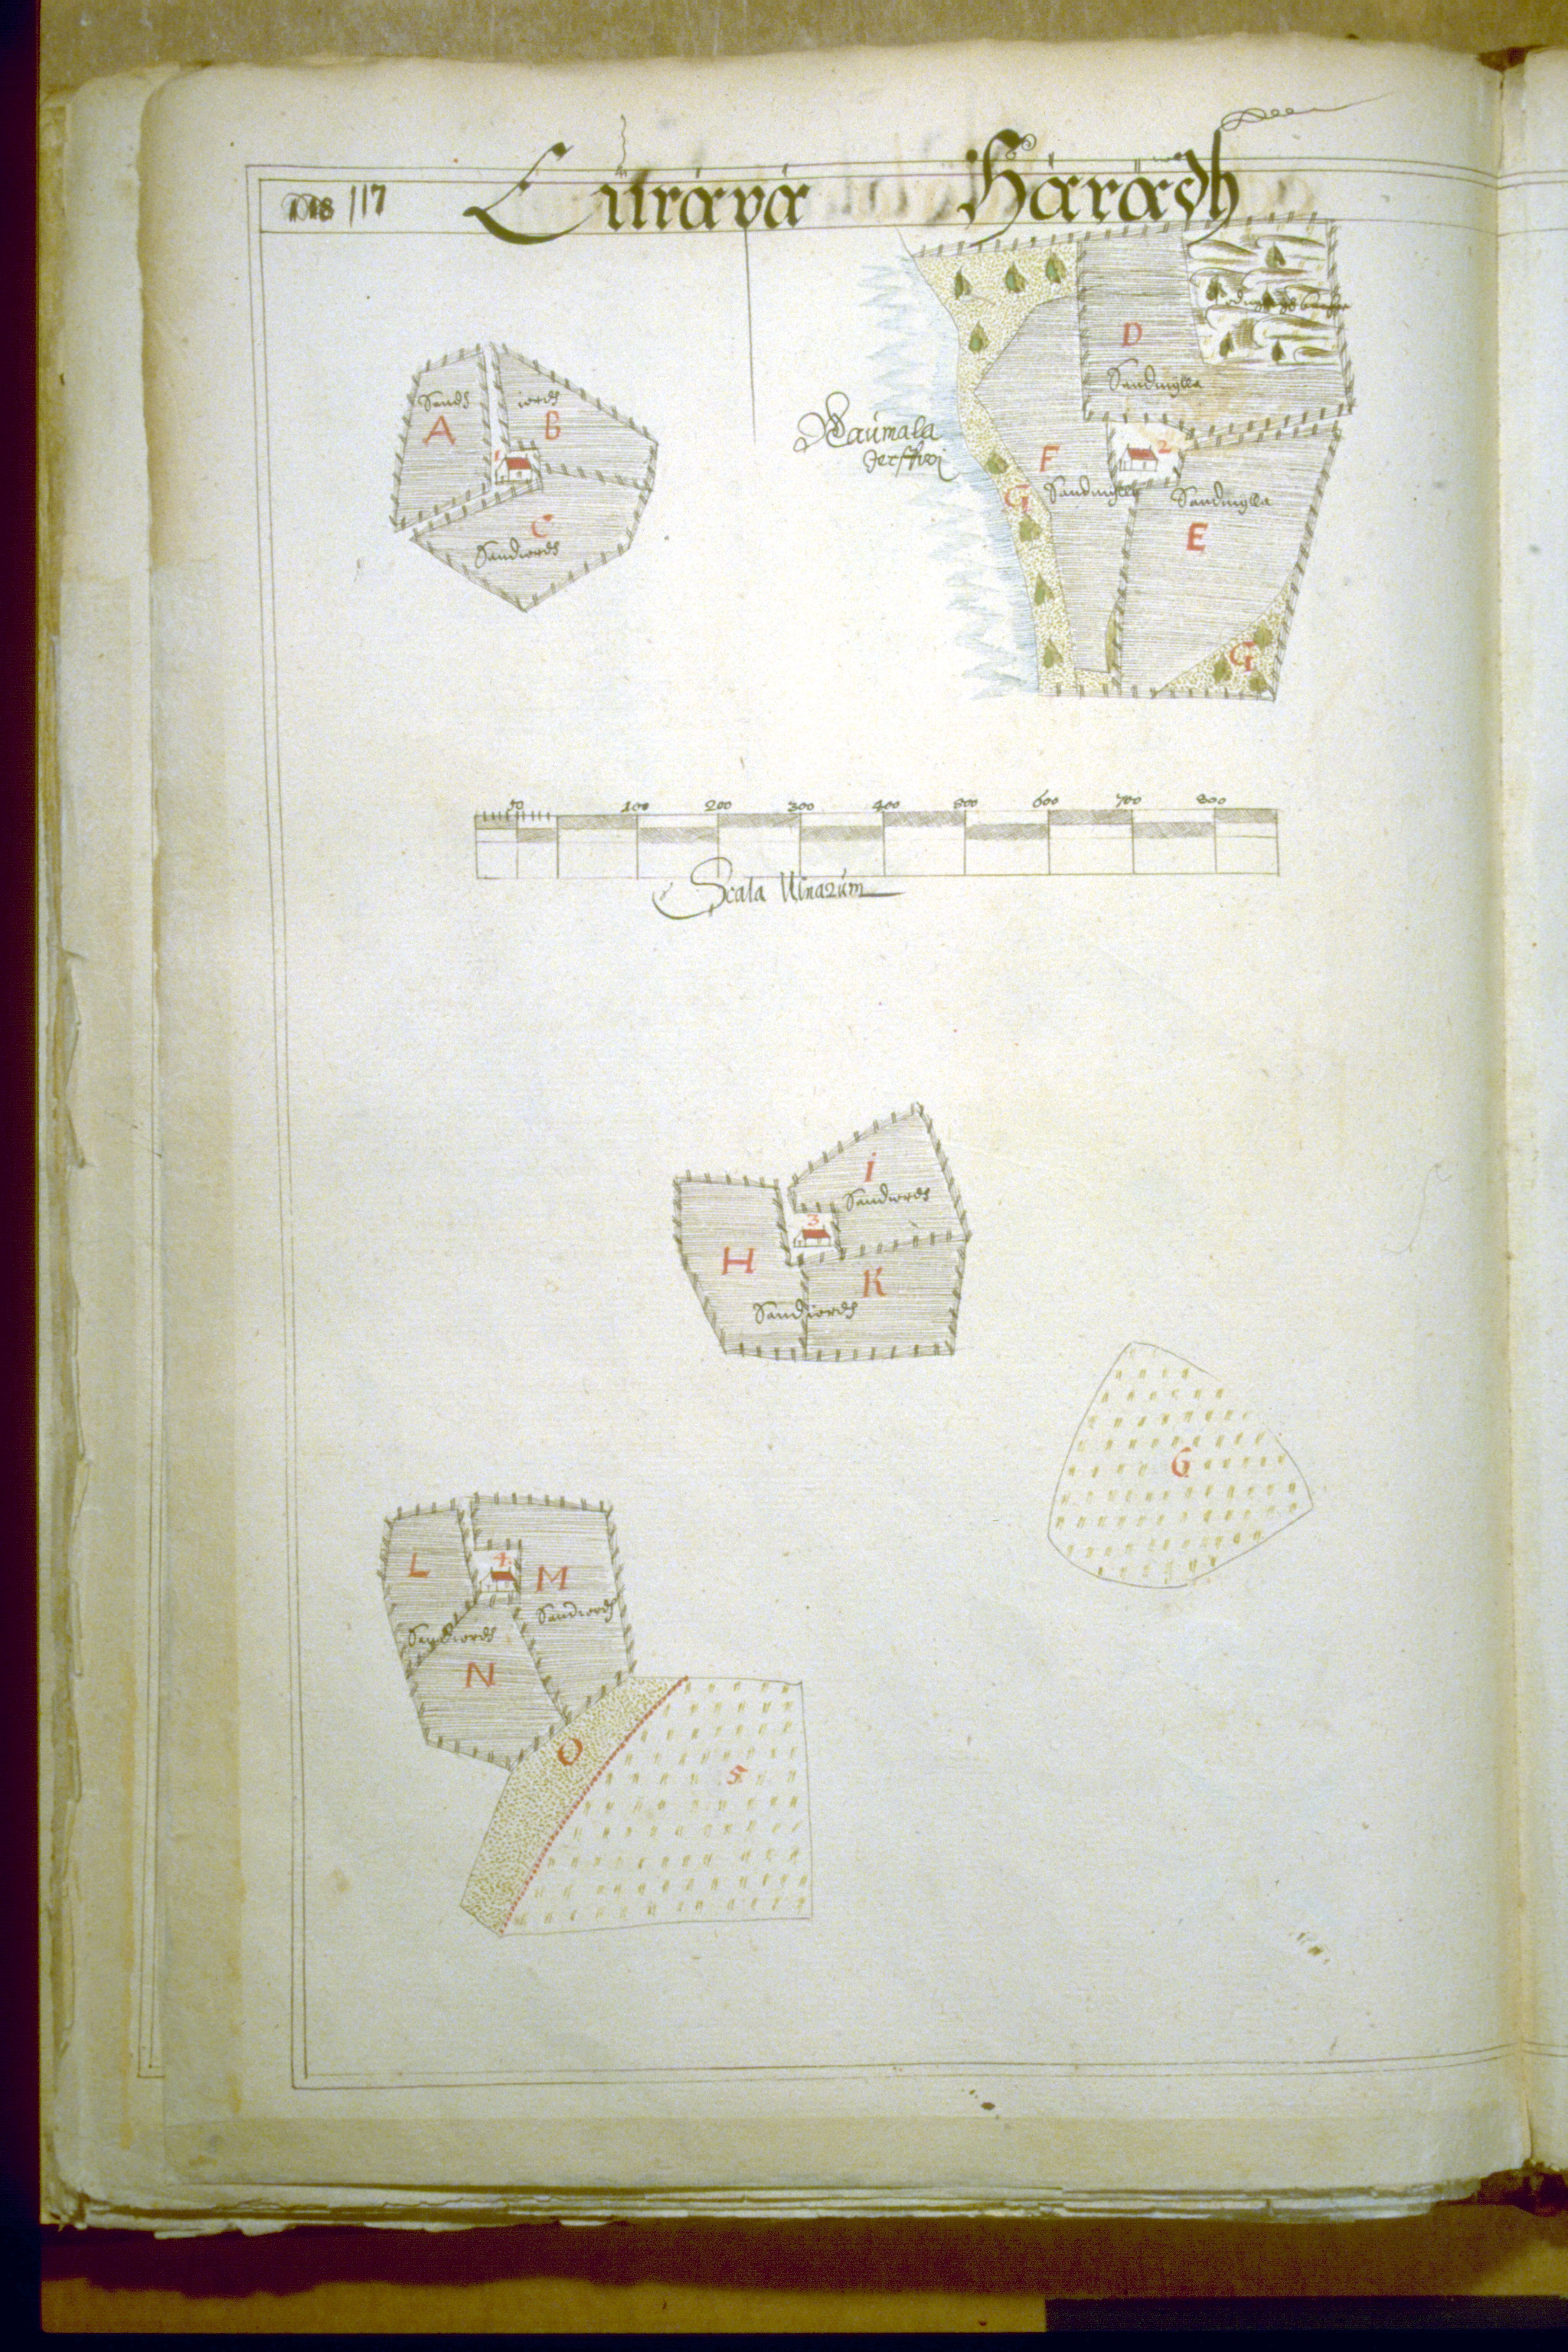 117
Euräpä Härädh
Sandh iordh
A
B
1
C
Sandiordh
D
Sandmylla
Raumala
Jerffwi
2
F
Sandmylla
G
Sandmylla
E
G
50 100 200 300 400 500 600 700 800
Scala Ulnarum
I
Sandiordh
3
H
K
Sandiordh
6
4
L
M
Sandiordh
Sandiordh
N
O
5